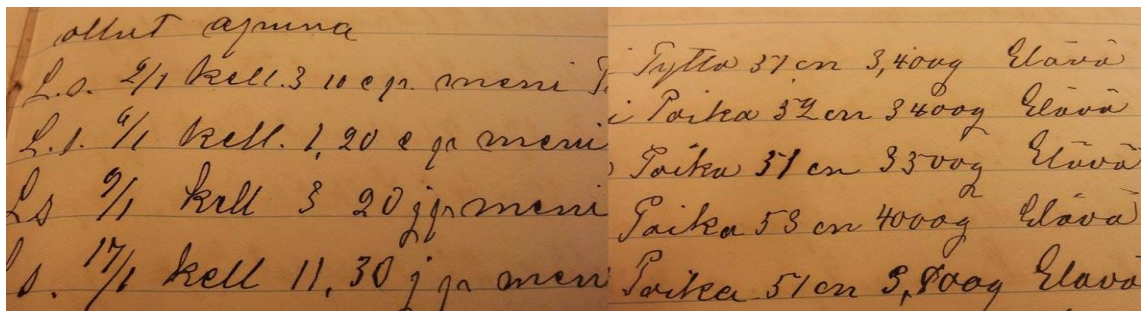 ollut apuna
L.s. 2/1 kell. 3 10 e p. meni
L.s. 6/1 kell. 1,20 e p meni
Ls 9/1 kell 3 20 j p meni
s. 17/1 kell 11,30 j p meni
Tyttö 51 cm 3,400g Elävä
Poika 52 cm 3400g Elävä
Poika 51 cm 3500g Elävä
Poika 53 cm 4000g Elävä
Poika 51 cm 3,800g Elävä